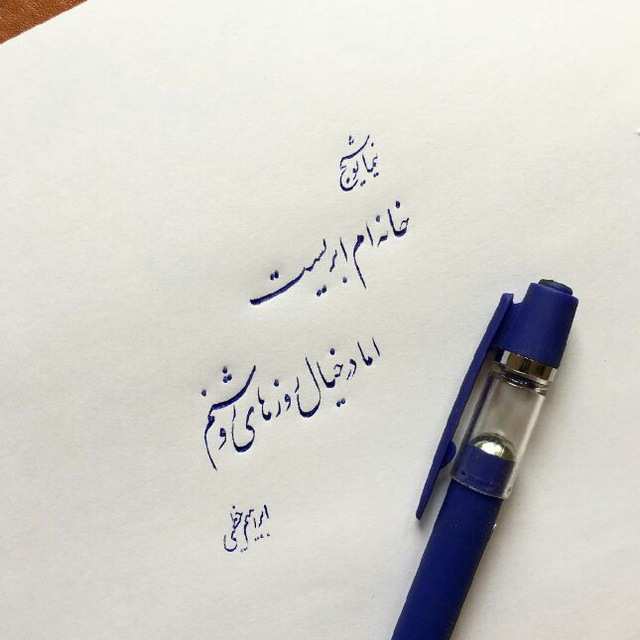 نیما یوشیج
خانه‌ام ابریست
اما در خیال روزهای روشنم
ابراهیم